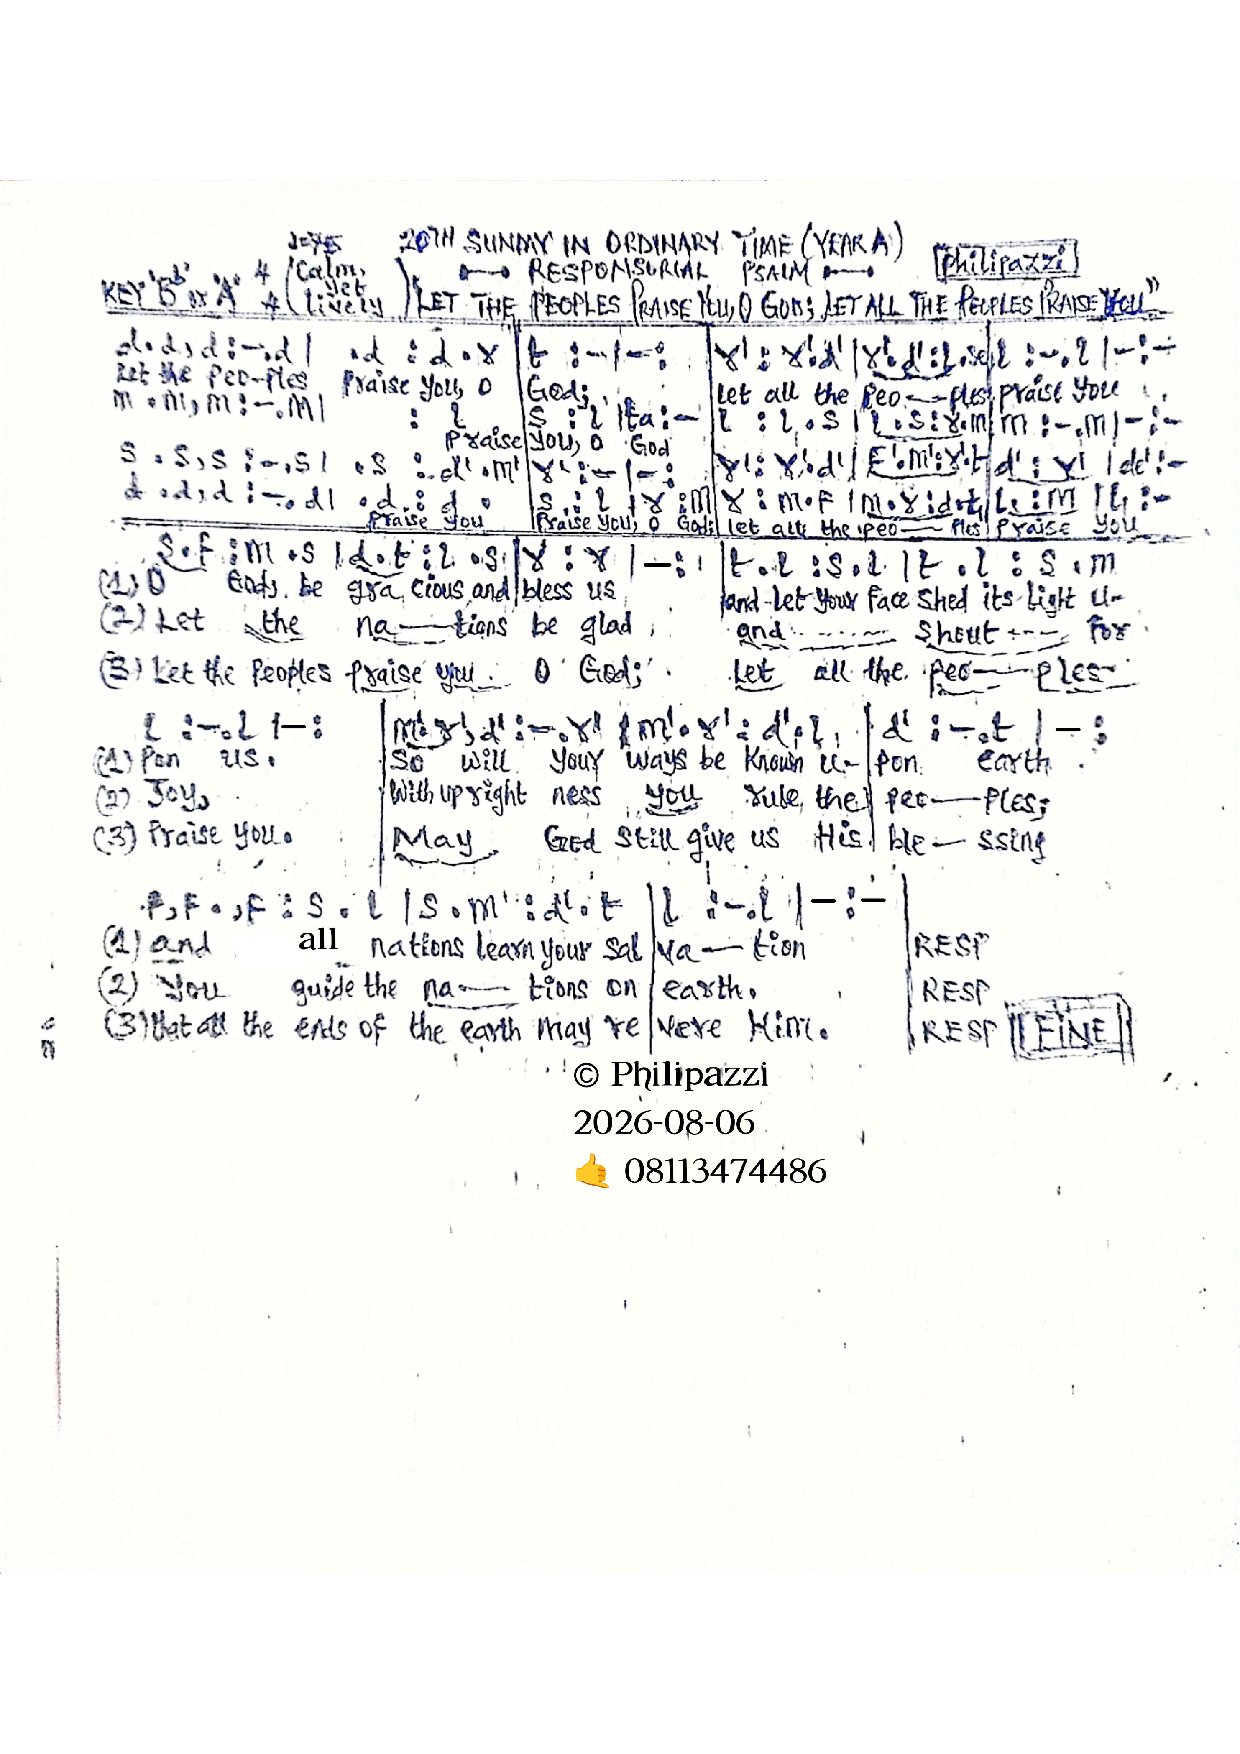 20TH SUNDAY IN ORDINARY TIME (YEAR A)
RESPONSORIAL PSALM
Philipazzi
KEY "Bb" or "A" 4/4 (Calm, yet lively) "LET THE PEOPLES PRAISE YOU, O GOD; LET ALL THE PEOPLES PRAISE YOU"
d.d,d:-.d| .d :d.r|t :-|-:|r':r'.d'|r'.d':l.se|l :-.l|-:-
Let the Peo-ples Praise You, O God; Let all the Peo—ples praise You
m.m,m:-.m| : l |s :l|ta:-|l :l.s|l.s:r.m|m :-.m|-:-
Praise You, O God
s.s,s:-.s| .s :d'.m'|r':-|-:|r':r'.d'|f'.m':r'.t|d':r'|de':-
d.d,d:-.d| .d :d. |s :l|r:m|r:m.f|m.r:d.t,|l,:m|l,:-
Praise You Praise You, O God; let all the peo—ples Praise You
s.f:m.s|d.t:l.s|r:r|-:|t.l:s.l|t.l:s.m
(1) O God, be gra cious and bless us and let Your Face Shed its light u-
(2) Let the na—tions be glad and Shout for
(3) Let the Peoples praise you O God; Let all the peo—ples
l :-.l|-:|m'.r',d':-.r'|m'.r':d'.l|d':-.t|-:
(1) Pon us. So will Your ways be Known u- pon earth
(2) Joy, With upright ness you rule the peo—ples;
(3) Praise You. May God still give us His ble—ssing
f,f.,f:s.l|s.m':d'.t|l :-.l|-:-
(1) and all nations learn your sal va—tion RESP
(2) You guide the na—tions on earth. RESP
(3) that all the ends of the earth may re vere Him. RESP FINE
© Philipazzi
2026-08-06
🤙 08113474486